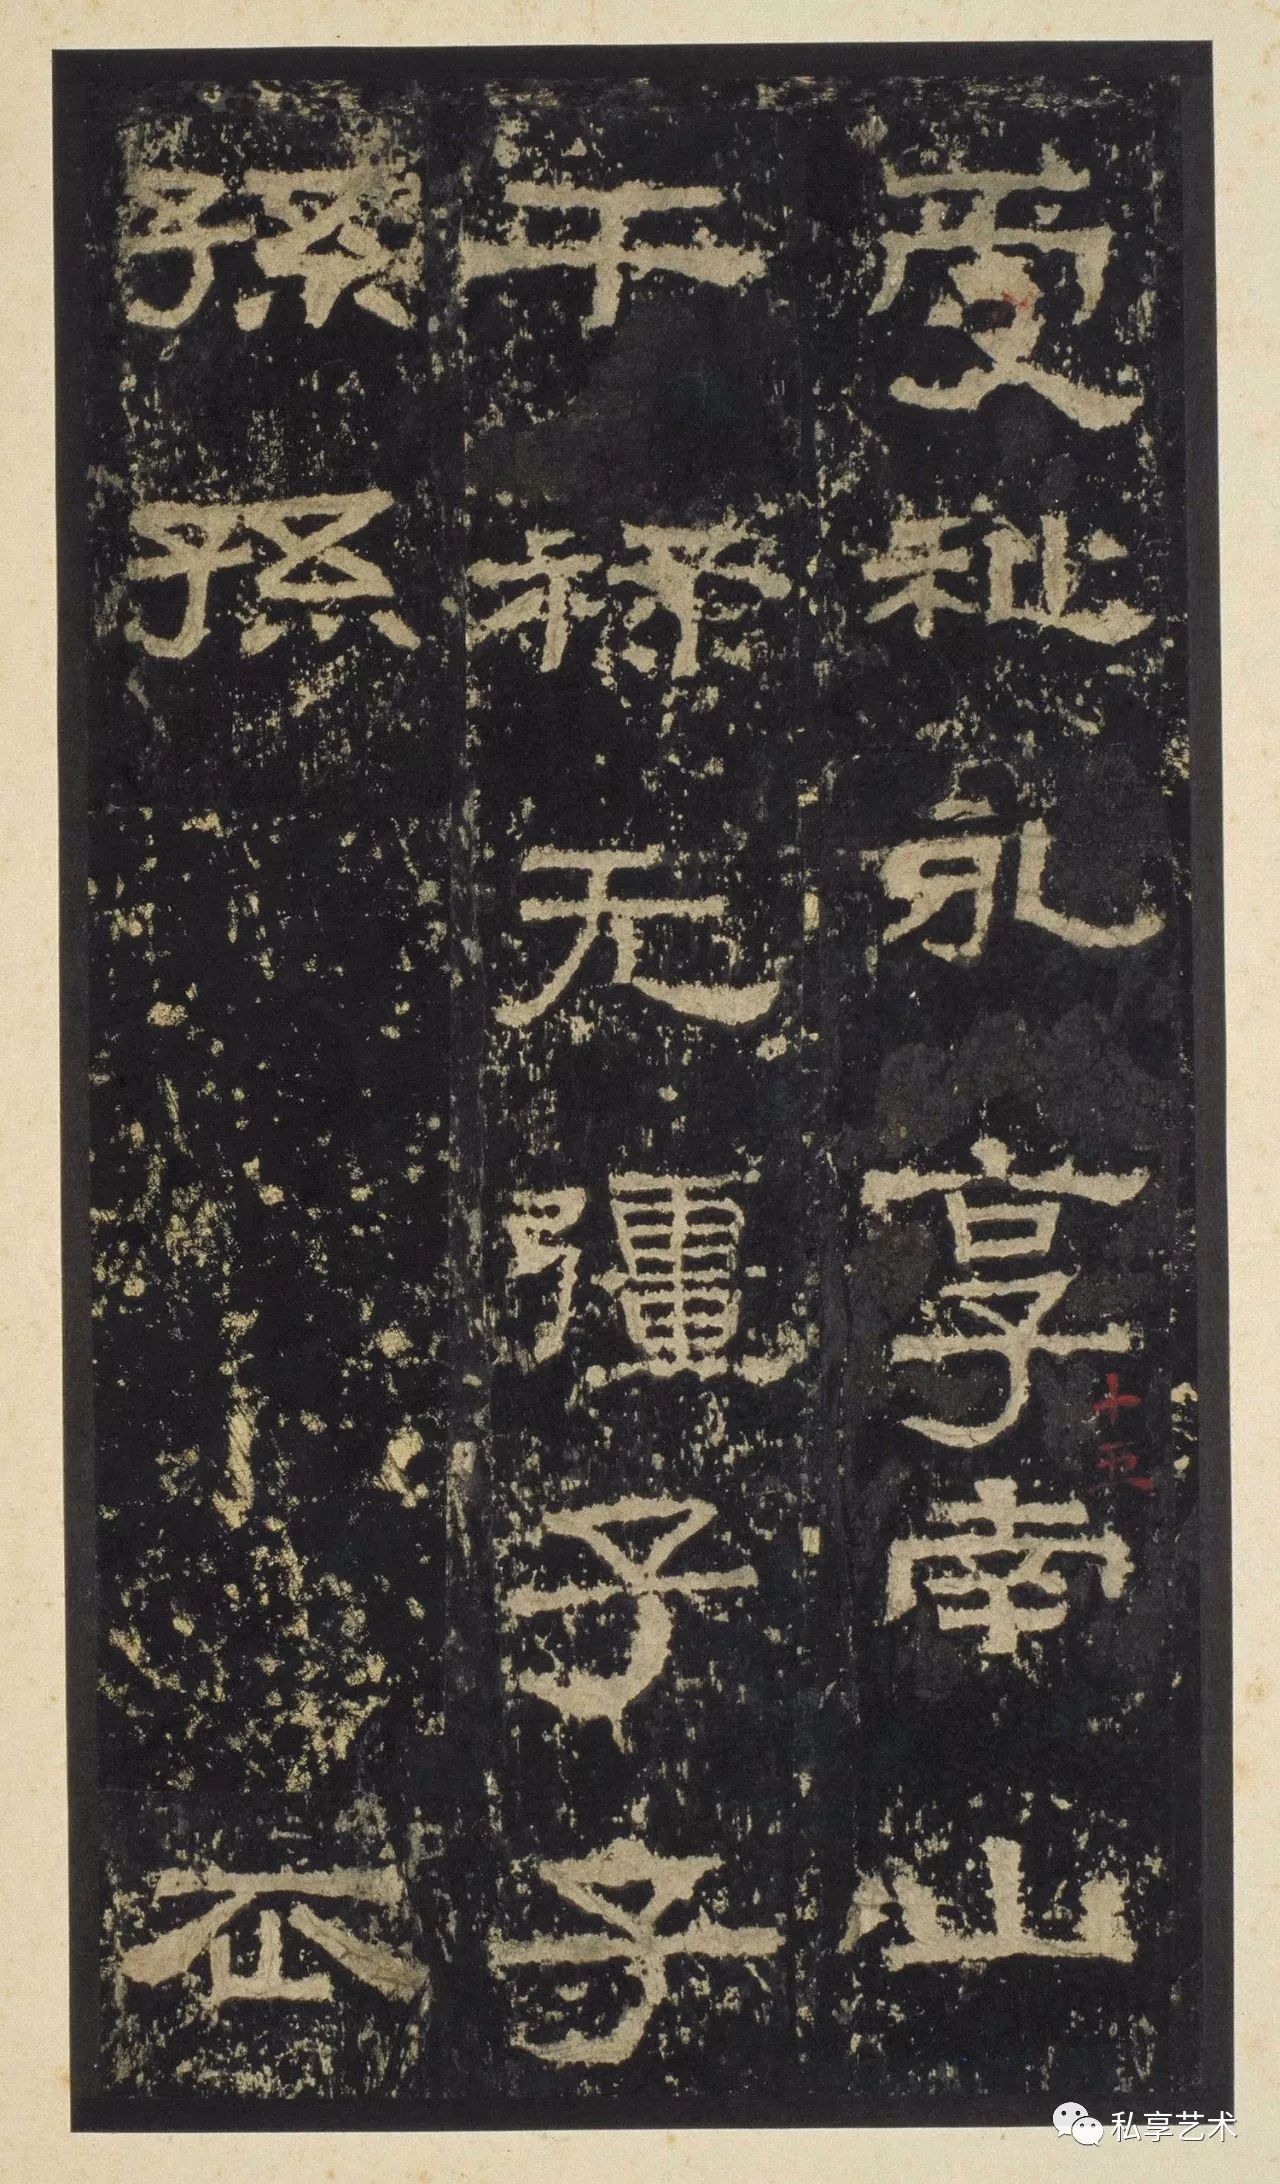 受祉永享南山
干祿无疆子子
孫孫
十五
私享艺术